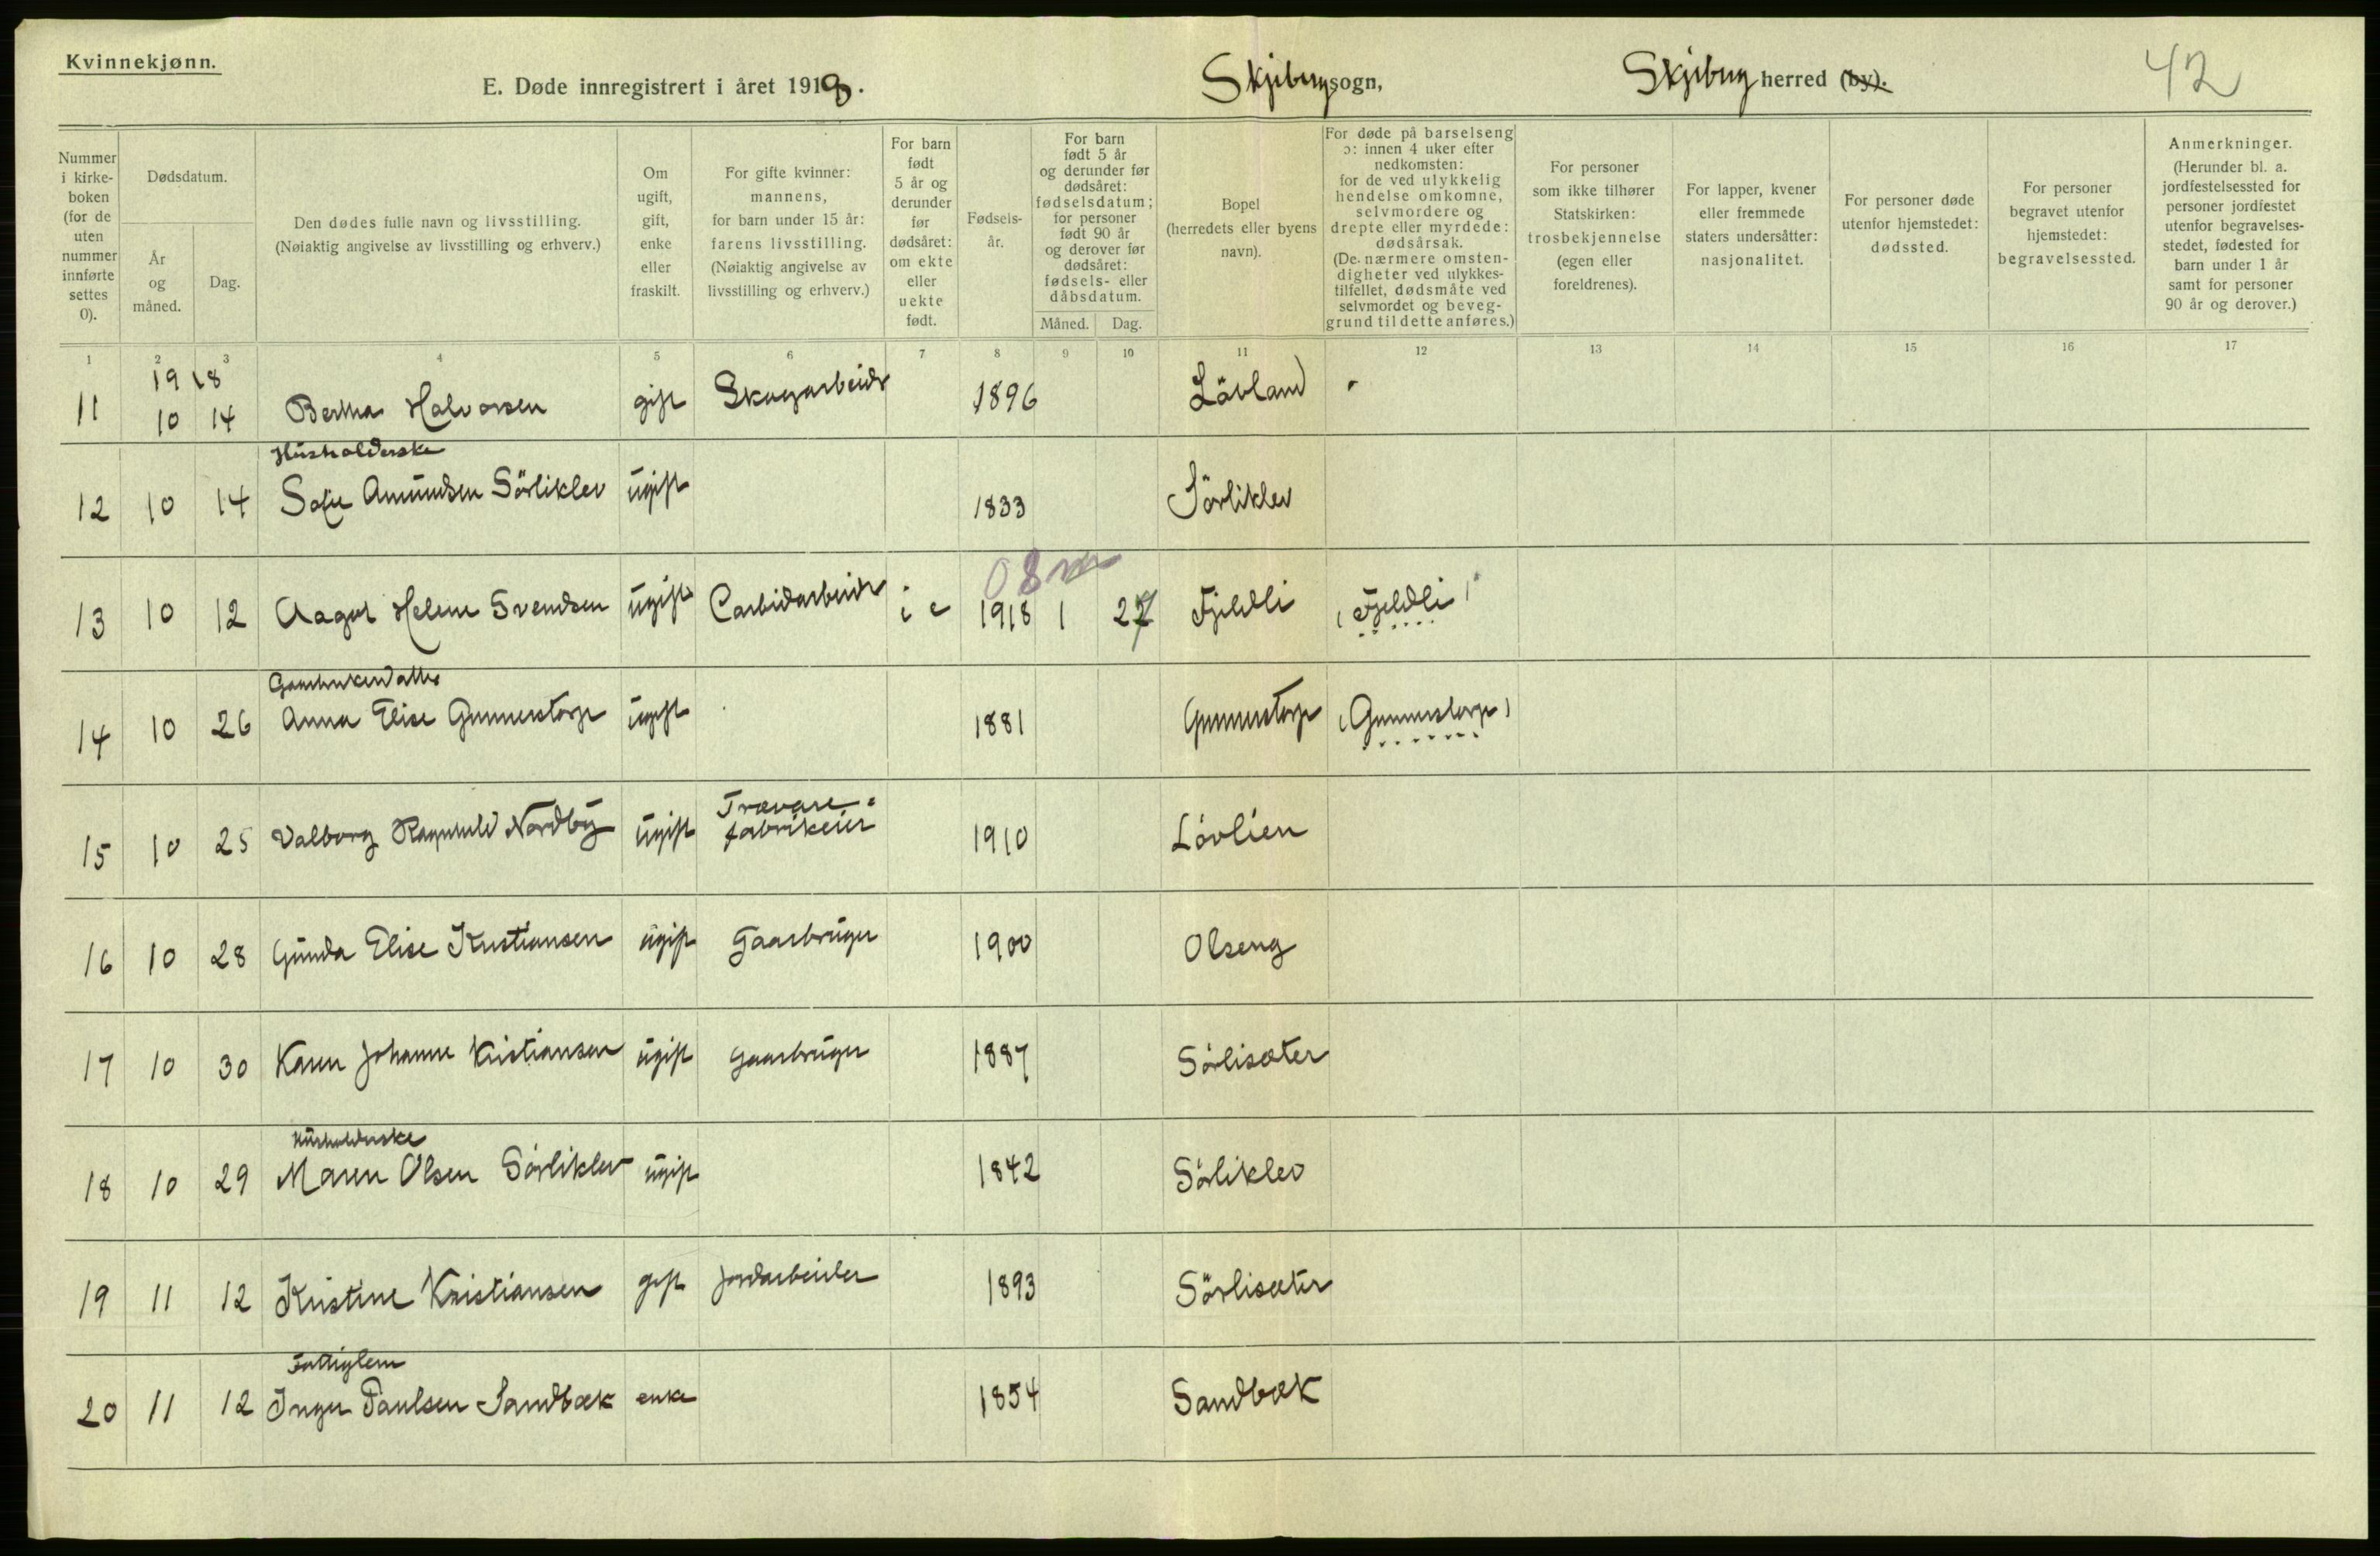 Kvinnekjønn.
E. Døde innregistrert i året 1918.
Skjeberg sogn,
Skjeberg herred (by).
42
Nummer i kirkeboken (for de uten nummer innførte settes 0).
Dødsdatum.
År og måned.
Dag.
Den dødes fulle navn og livsstilling. (Nøiaktig angivelse av livsstilling og erhverv.)
Om ugift, gift, enke eller fraskilt.
For gifte kvinner: mannens, for barn under 15 år: farens livsstilling. (Nøiaktig angivelse av livsstilling og erhverv.)
For barn født 5 år og derunder før dødsåret: om ekte eller uekte født.
Fødselsår.
For barn født 5 år og derunder før dødsåret: fødselsdatum; for personer født 90 år og derover før dødsåret: fødsels- eller dåbsdatum.
Måned.
Dag.
Bopel (herredets eller byens navn).
For døde på barselseng ɔ: innen 4 uker efter nedkomsten: for de ved ulykkelig hendelse omkomne, selvmordere og drepte eller myrdede: dødsårsak. (De nærmere omstendigheter ved ulykkestilfellet, dødsmåte ved selvmordet og beveggrund til dette anføres.)
For personer som ikke tilhører Statskirken: trosbekjennelse (egen eller foreldrenes).
For lapper, kvener eller fremmede staters undersåtter: nasjonalitet.
For personer døde utenfor hjemstedet: dødssted.
For personer begravet utenfor hjemstedet: begravelsessted.
Anmerkninger. (Herunder bl. a. jordfestelsessted for personer jordfestet utenfor begravelsesstedet, fødested for barn under 1 år samt for personer 90 år og derover.)
1 2 3 4 5 6 7 8 9 10 11 12 13 14 15 16 17
1918
11 10 14 Bertha Halvorsen gift Skogarbeider 1896 Lövland
Husholderske
12 10 14 Sofie Amundsen Sörliklev ugift 1833 Sörliklev
08m
13 10 12 Aagot Helene Svendsen ugift Carbidarbeider i e 1918 1 27 Fjeldli (Fjeldli)
Gaarbrukerdatter
14 10 26 Anna Elise Gunnerstorp ugift 1881 Gunnerstorp (Gunnerstorp)
15 10 25 Valborg Ragnhild Nordby ugift Trævare-fabrikeier 1910 Lövlien
16 10 28 Gunda Elise Kristiansen ugift Gaarbruger 1900 Olseng
17 10 30 Karen Johanne Kristiansen ugift gaarbruger 1887 Sörlisæter
Husholderske
18 10 29 Maren Olsen Sörliklev ugift 1842 Sörliklev
19 11 12 Kristine Kristiansen gift Jordarbeider 1893 Sörlisæter
Fattiglem
20 11 12 Inger Paulsen Sandbæk enke 1854 Sandbæk